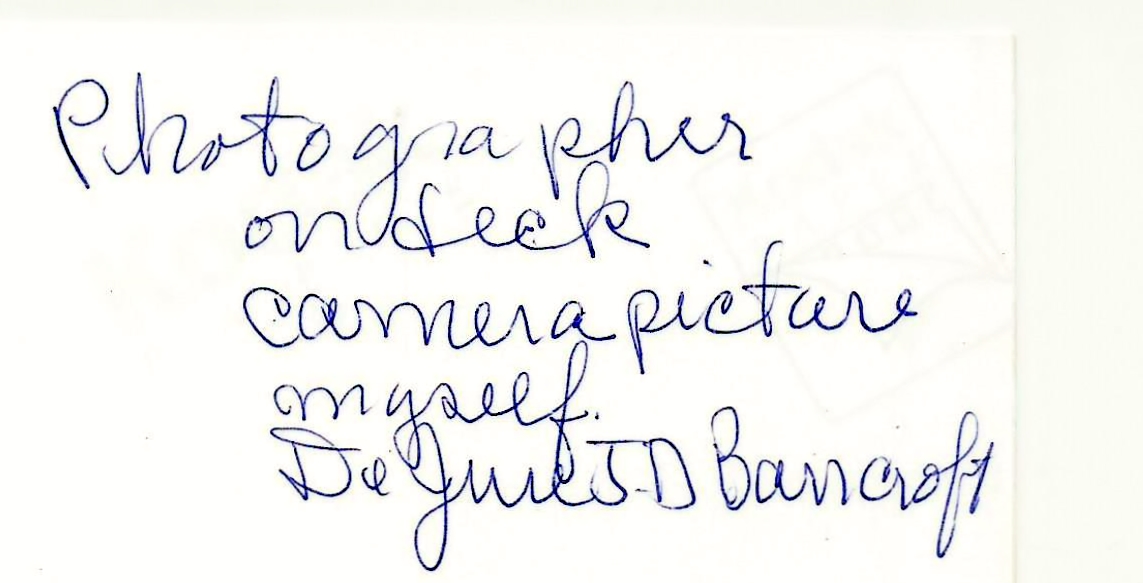 Photographer
on deck
camera picture
myself.
De June J D Bancroft